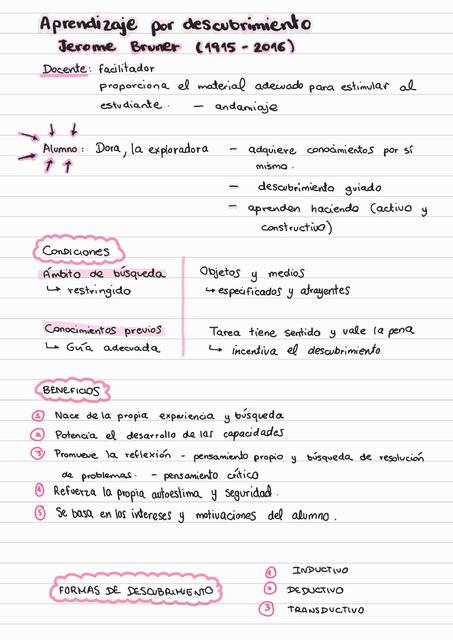 Aprendizaje por descubrimiento
Jerome Bruner (1915 - 2016)
Docente: facilitador
proporciona el material adecuado para estimular al
estudiante. - andamiaje
Alumno: Dora, la exploradora - adquiere conocimientos por sí
mismo.
- descubrimiento guiado
- aprenden haciendo (activo y
constructivo)
CONDICIONES
Ámbito de búsqueda
↳ restringido
Objetos y medios
↳ especificados y atrayentes
Conocimientos previos
↳ Guía adecuada
Tarea tiene sentido y vale la pena
↳ incentiva el descubrimiento
BENEFICIOS
1 Nace de la propia experiencia y búsqueda
2 Potencia el desarrollo de las capacidades
3 Promueve la reflexión - pensamiento propio y búsqueda de resolución
de problemas. - pensamiento crítico
4 Refuerza la propia autoestima y seguridad.
5 Se basa en los intereses y motivaciones del alumno.
FORMAS DE DESCUBRIMIENTO
1 INDUCTIVO
2 DEDUCTIVO
3 TRANSDUCTIVO